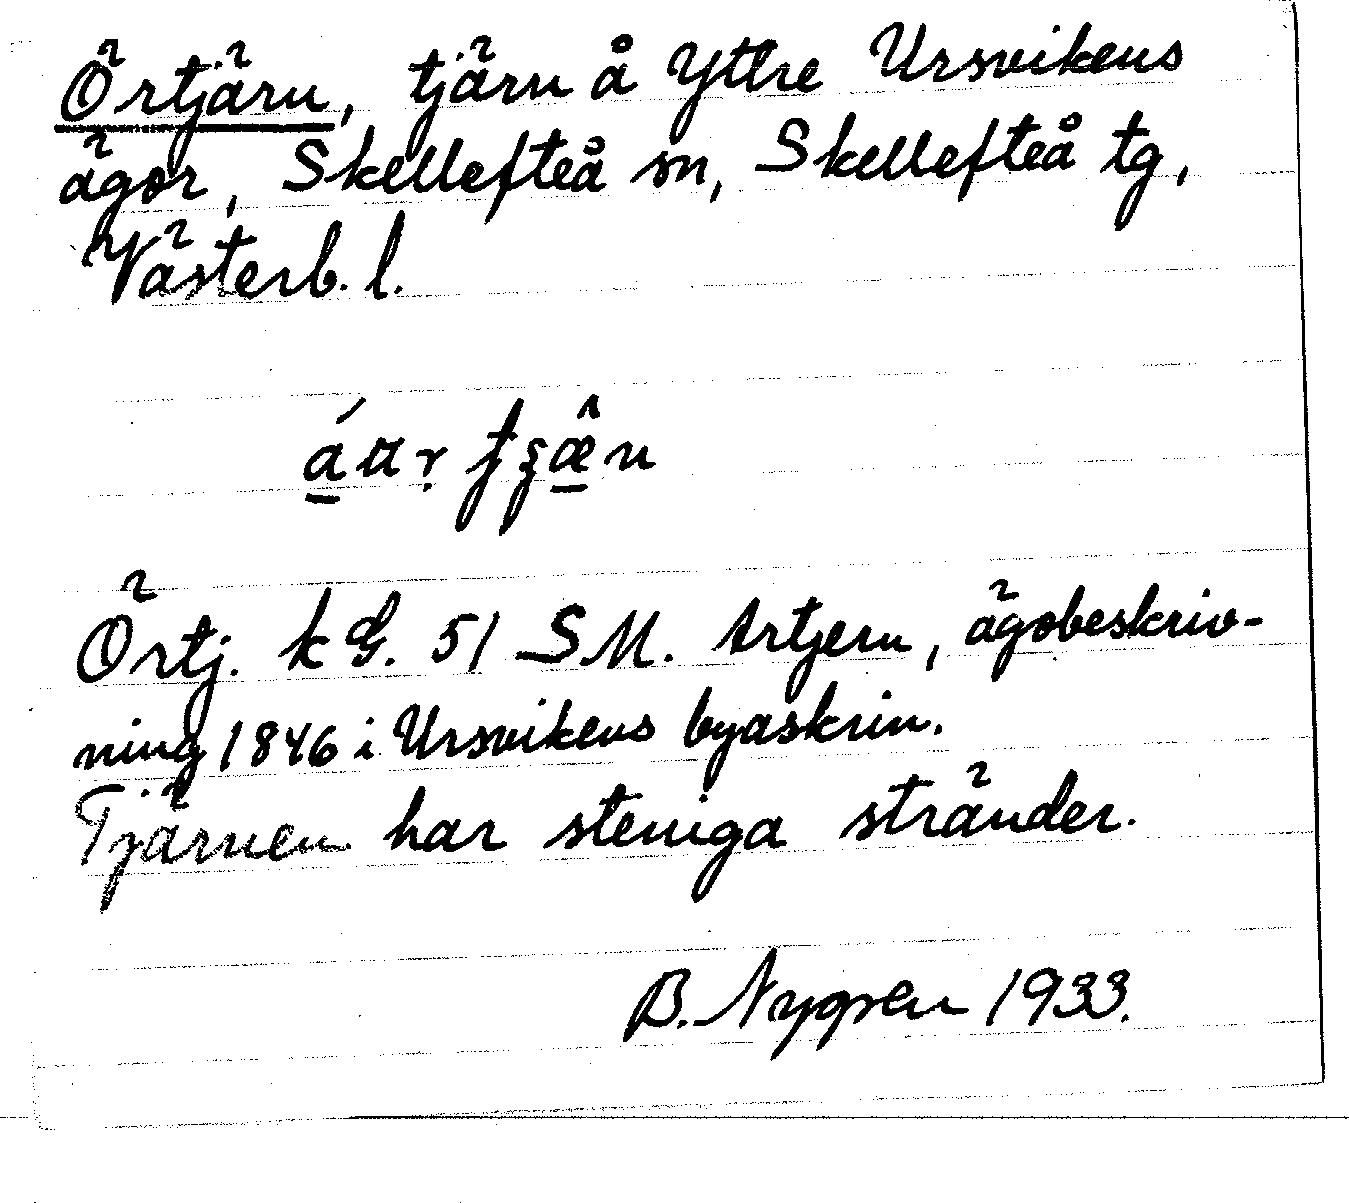 Örtjärn, tjärn å Yttre Ursvikens
ägor, Skellefteå sn, Skellefteå tg,
Västerb. l.
Örtj. k G. 51 SM. Artjern, ägobeskriv-
ning 1846 i Ursvikens byaskrin.
Tjärnen har steniga stränder.
B. Nygren 1933.